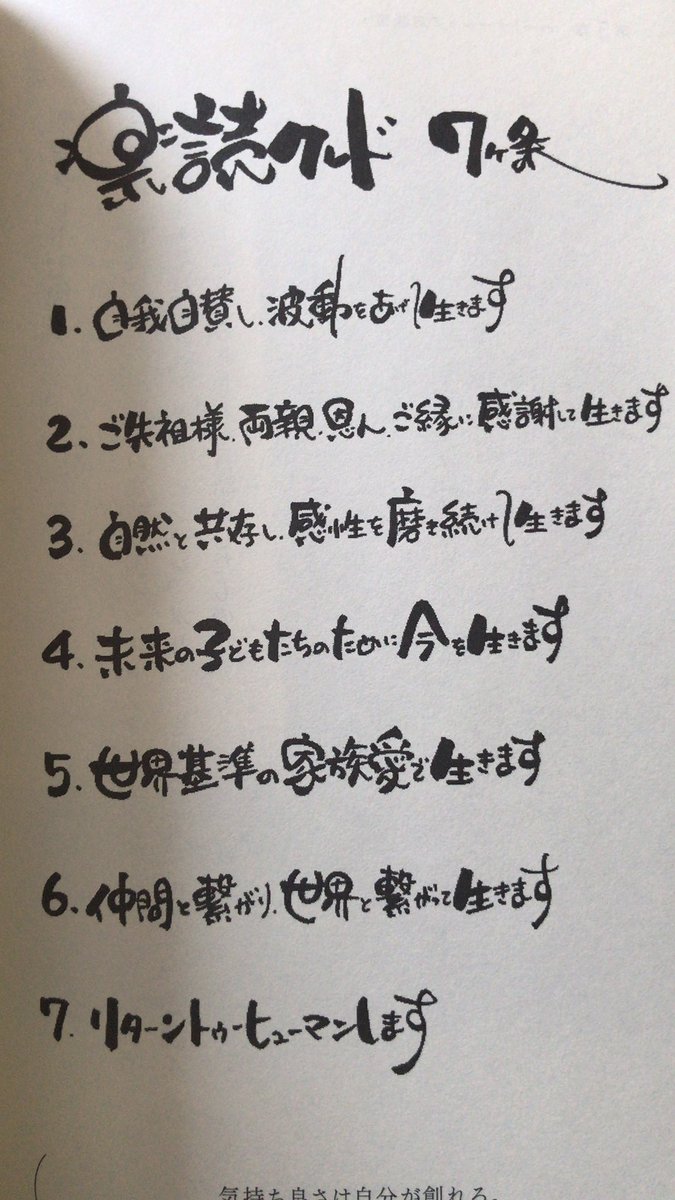 楽読クレド 7ヶ条
1. 自我自賛し、波動をあげて生きます
2. ご先祖様、両親、恩人、ご縁に感謝して生きます
3. 自然と共存し、感性を磨き続けて生きます
4. 未来の子どもたちのために今を生きます
5. 世界基準の家族愛で生きます
6. 仲間と繋がり、世界と繋がって生きます
7. リターントゥーヒューマンします
気持ち良さは自分が創れる。